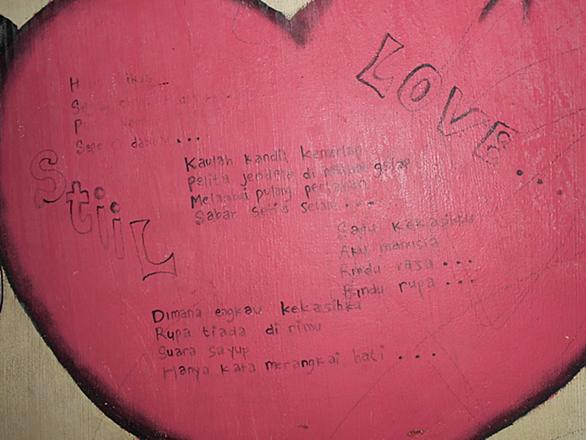 LOVE...
dahulu...
StiiL
Kaulah kandil kemerlap
Pelita jendela di malam gelap
Melambai pulang perlahan
Sabar setia selalu....
Satu kekasihku
Aku manusia
Rindu rasa...
Rindu rupa...
Dimana engkau kekasihku
Rupa tiada di
Suara sayup
Hanya kata merangkai hati...